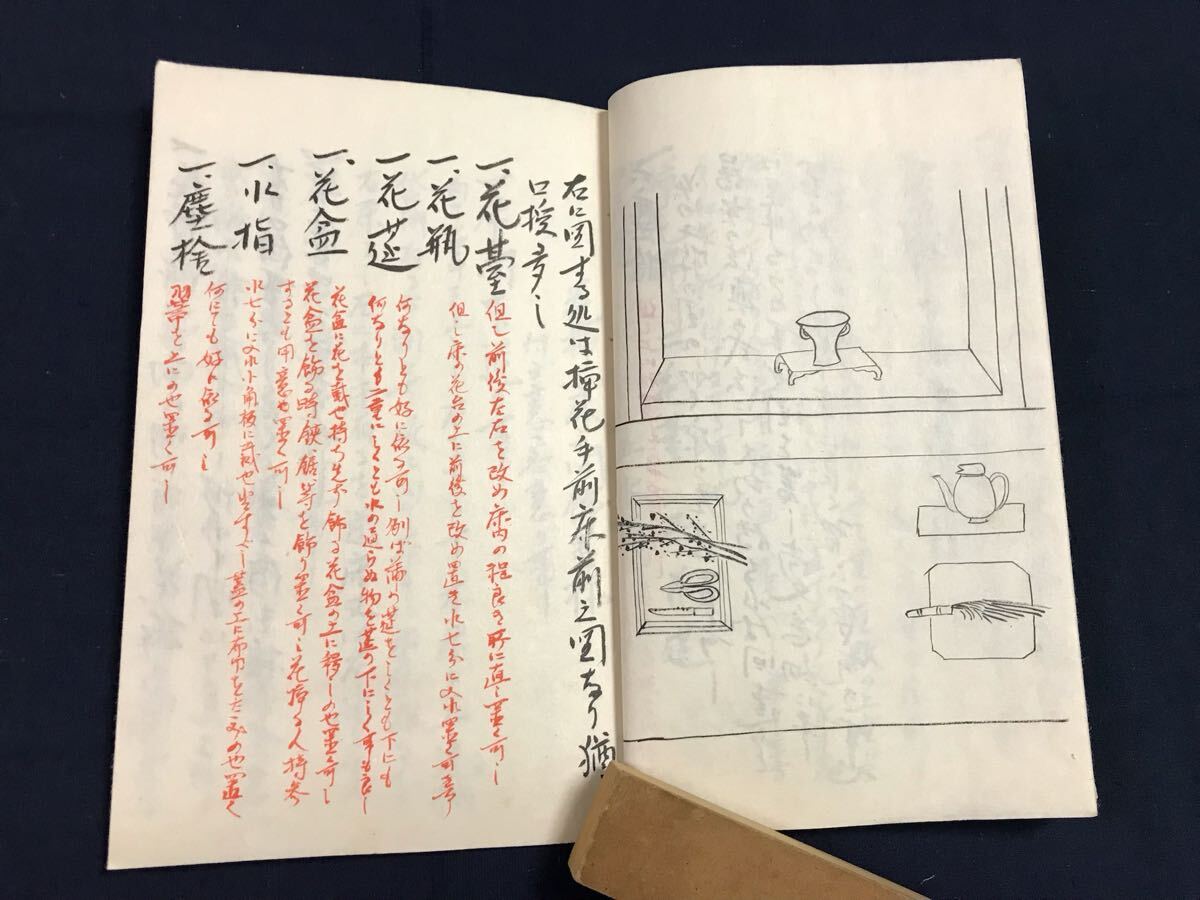 右に図する処は挿花手前床前之図なり猶
口授多し
一、花臺
但し前後左右を改め床内の程良き所に直し置く可し
一、花瓶
但し床の花台の上に前後を改め置き水七分に入れ置く可き
一、花莚
何なりとも好に依る可し別ば蒲の莚をしくとも下にも
何なりとも二重にしくとも水の通らぬ物を莚の下にしく事も良し
一、花盆
花盆に花を載せ持ち先ず飾る花盆の上に
花盆を飾る時鋏、鋸等を飾り置く可し花挿る人持参
するとも用意せ置く可し
一、水指
水七分に入れ小角板に載せ出すべし蓋の上に布巾をたゝみのせ置く
一、塵捨
何にても好に依る可し
羽箒を上にのせ置く可し